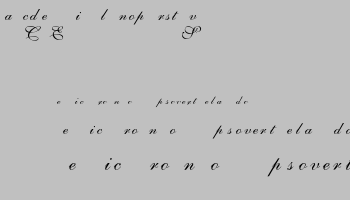 a cde i l nop rst v
C E S
e ic ro n o psovert ela do
e ic ro n o psovert ela do
e ic ro n o psovert